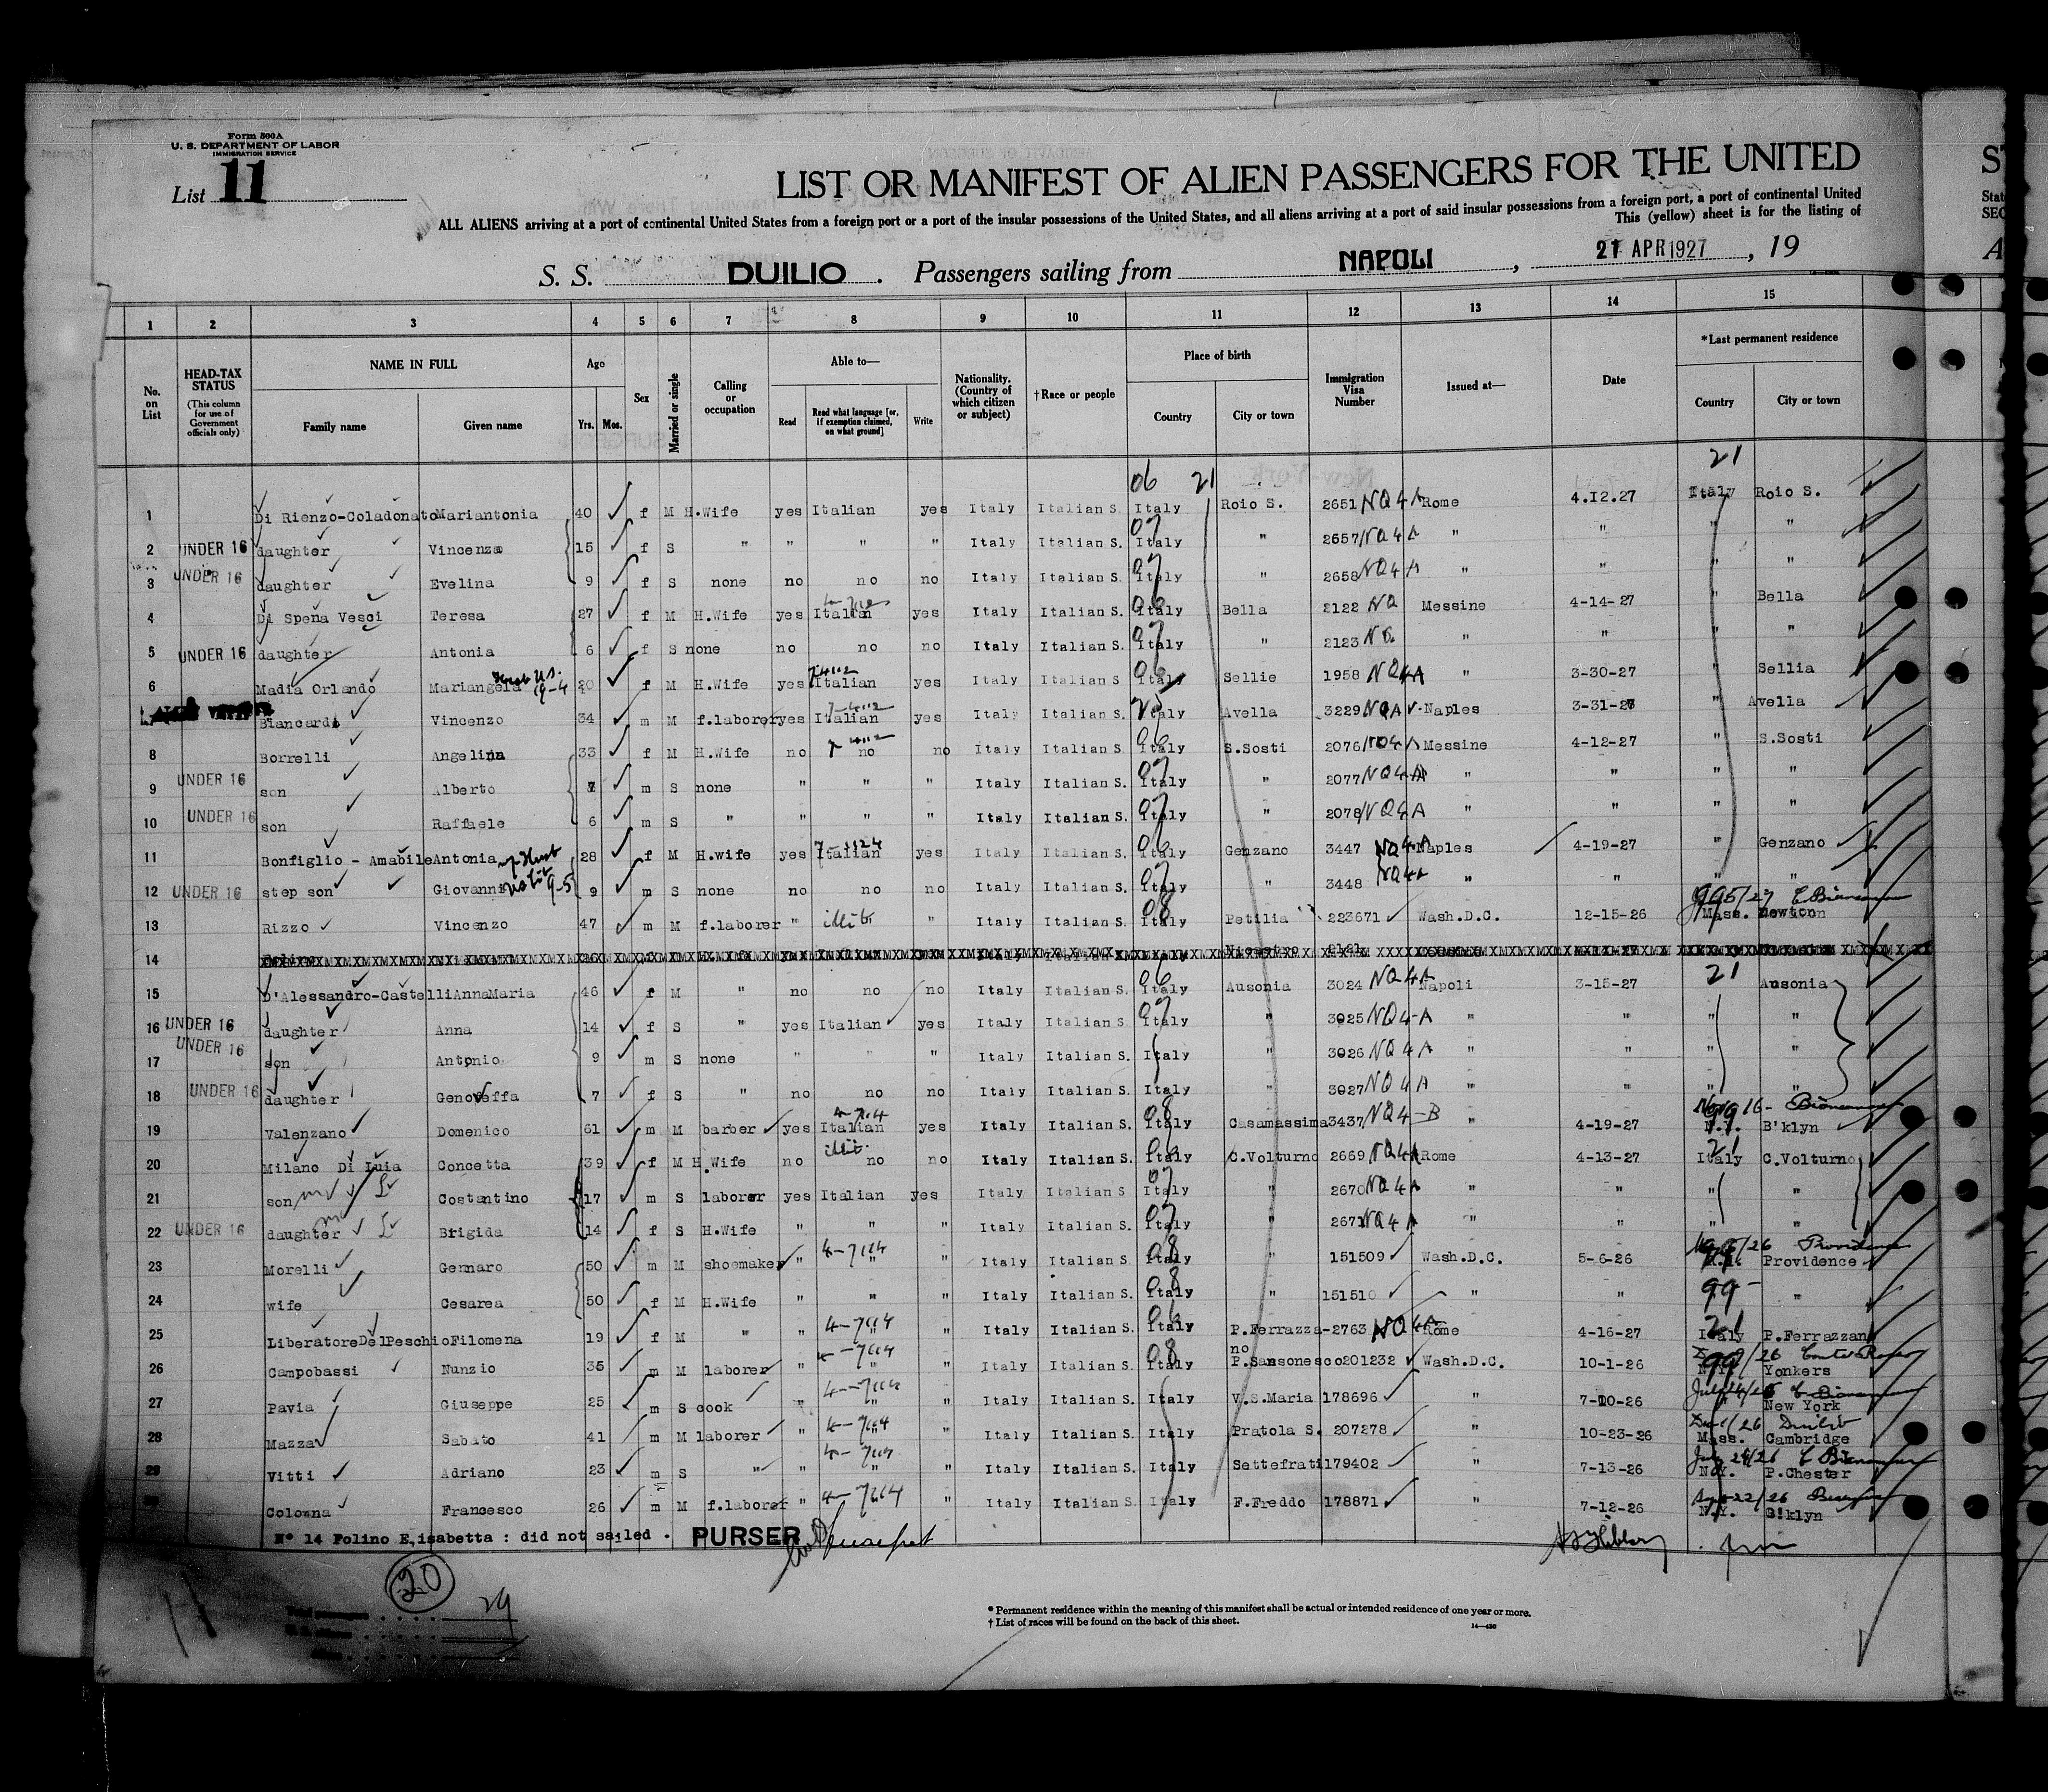 Form 500A
U. S. DEPARTMENT OF LABOR
IMMIGRATION SERVICE
List 11
LIST OR MANIFEST OF ALIEN PASSENGERS FOR THE UNITED
ALL ALIENS arriving at a port of continental United States from a foreign port or a port of the insular possessions of the United States, and all aliens arriving at a port of said insular possessions from a foreign port, a port of continental United
This (yellow) sheet is for the listing of
S. S. DUILIO . Passengers sailing from NAPOLI , 21 APR 1927 , 19
1 2 3 4 5 6 7 8 9 10 11 12 13 14 15
No. on List
HEAD-TAX STATUS (This column for use of Government officials only)
NAME IN FULL Family name Given name
Age Yrs. Mos.
Sex
Married or single
Calling or occupation
Able to— Read Read what language [or, if exemption claimed, on what ground] Write
Nationality. (Country of which citizen or subject)
†Race or people
Place of birth Country City or town
Immigration Visa Number
Issued at—
Date
*Last permanent residence Country City or town
06 21 21
1 Di Rienzo-Coladonato Mariantonia 40 f M H.Wife yes Italian yes Italy Italian S. Italy Roio S. 2651 NQ4A Rome 4.12.27 Italy Roio S.
2 UNDER 16 daughter Vincenza 15 f S " " " " Italy Italian S. 07 Italy " 2657 NQ4A " " " "
3 UNDER 16 daughter Evelina 9 f S none no no no Italy Italian S. 07 Italy " 2658 NQ4A " " " "
4 Di Spena Vesci Teresa 27 f M H.Wife yes Italian yes Italy Italian S. 06 Italy Bella 2122 NQ Messine 4-14-27 " Bella
5 UNDER 16 daughter Antonia 6 f S none no no no Italy Italian S. 07 Italy " 2123 NQ " " " "
6 Madia Orlando Mariangela 20 f M H.Wife yes Italian yes Italy Italian S. 06 Italy Sellie 1958 NQ4A " 3-30-27 " Sellia
Biancardi Vincenzo 34 m M f.laborer yes Italian yes Italy Italian S. Italy Avella 3229 NQA Naples 3-31-27 " Avella
8 Borrelli Angelina 33 f M H.Wife no no no Italy Italian S. 06 Italy S.Sosti 2076 NQ4A Messine 4-12-27 " S.Sosti
9 UNDER 16 son Alberto m S none " " " Italy Italian S. 07 Italy " 2077 NQ4A " " " "
10 UNDER 16 son Raffaele 6 m S " " " " Italy Italian S. 07 Italy " 2078 NQ4A " " " "
11 Bonfiglio - Amabile Antonia 28 f M H.wife yes Italian yes Italy Italian S. 06 Italy Genzano 3447 NQ4A Naples 4-19-27 " Genzano
12 UNDER 16 step son Giovanni 9 m S none no no no Italy Italian S. 07 Italy " 3448 NQ4A " " " "
13 Rizzo Vincenzo 47 m M f.laborer " illit " Italy Italian S. 08 Italy Petilia 223671 Wash.D.C. 12-15-26 Mass. Newton
14
15 D'Alessandro-Castelli AnnaMaria 46 f M " no no no Italy Italian S. 06 Italy Ausonia 3024 NQ4A Napoli 3-15-27 21 Ausonia
16 UNDER 16 daughter Anna 14 f S " yes Italian yes Italy Italian S 07 Italy " 3025 NQ4-A " " " "
17 UNDER 16 son Antonio 9 m S none " " " Italy Italian S. Italy " 3026 NQ4A " " " "
18 UNDER 16 daughter Genoveffa 7 f S " no no no Italy Italian S. Italy " 3027 NQ4A " " " "
19 Valenzano Domenico 61 m M barber yes Italian yes Italy Italian S. 08 Italy Casamassima 3437 NQ4-B " 4-19-27 N.Y. B'klyn
20 Milano Di Luia Concetta 39 f M H.Wife no illit no no Italy Italian S. 06 Italy C.Volturno 2669 NQ4A Rome 4-13-27 21 Italy C.Volturno
21 son Costantino 17 m S laborer yes Italian yes Italy Italian S 07 Italy " 2670 NQ4A " " " "
22 UNDER 16 daughter Brigida 14 f S H.Wife " " " Italy Italian S. 07 Italy " 2671 NQ4A " " " "
23 Morelli Gennaro 50 m M shoemaker " " " Italy Italian S. 08 Italy " 151509 Wash.D.C. 5-6-26 R.I. Providence
24 wife Cesarea 50 f M H.Wife " " " Italy Italian S. 08 Italy " 151510 " " 99 "
25 Liberatore DelPeschio Filomena 19 f M " " " " Italy Italian S. 06 Italy P.Ferrazzano 2763 NQ4A Rome 4-16-27 21 Italy P.Ferrazzan
26 Campobassi Nunzio 35 m M laborer " " " Italy Italian S. 08 Italy P.Sansonesco 201232 Wash.D.C. 10-1-26 N.Y. Yonkers
27 Pavia Giuseppe 25 m S cook " " " Italy Italian S. Italy V.S.Maria 178696 " 7-10-26 " New York
28 Mazza Sabato 41 m M laborer " " " Italy Italian S. Italy Pratola S. 207278 " 10-23-26 Mass. Cambridge
29 Vitti Adriano 23 m S " " " " Italy Italian S. Italy Settefrati 179402 " 7-13-26 N.Y. P.Chester
Colonna Francesco 26 m M f.laborer " " " Italy Italian S. Italy F.Freddo 178871 " 7-12-26 N.Y. B'klyn
N° 14 Folino E,isabetta : did not sailed . PURSER
20
29
* Permanent residence within the meaning of this manifest shall be actual or intended residence of one year or more.
† List of races will be found on the back of this sheet.
14—430